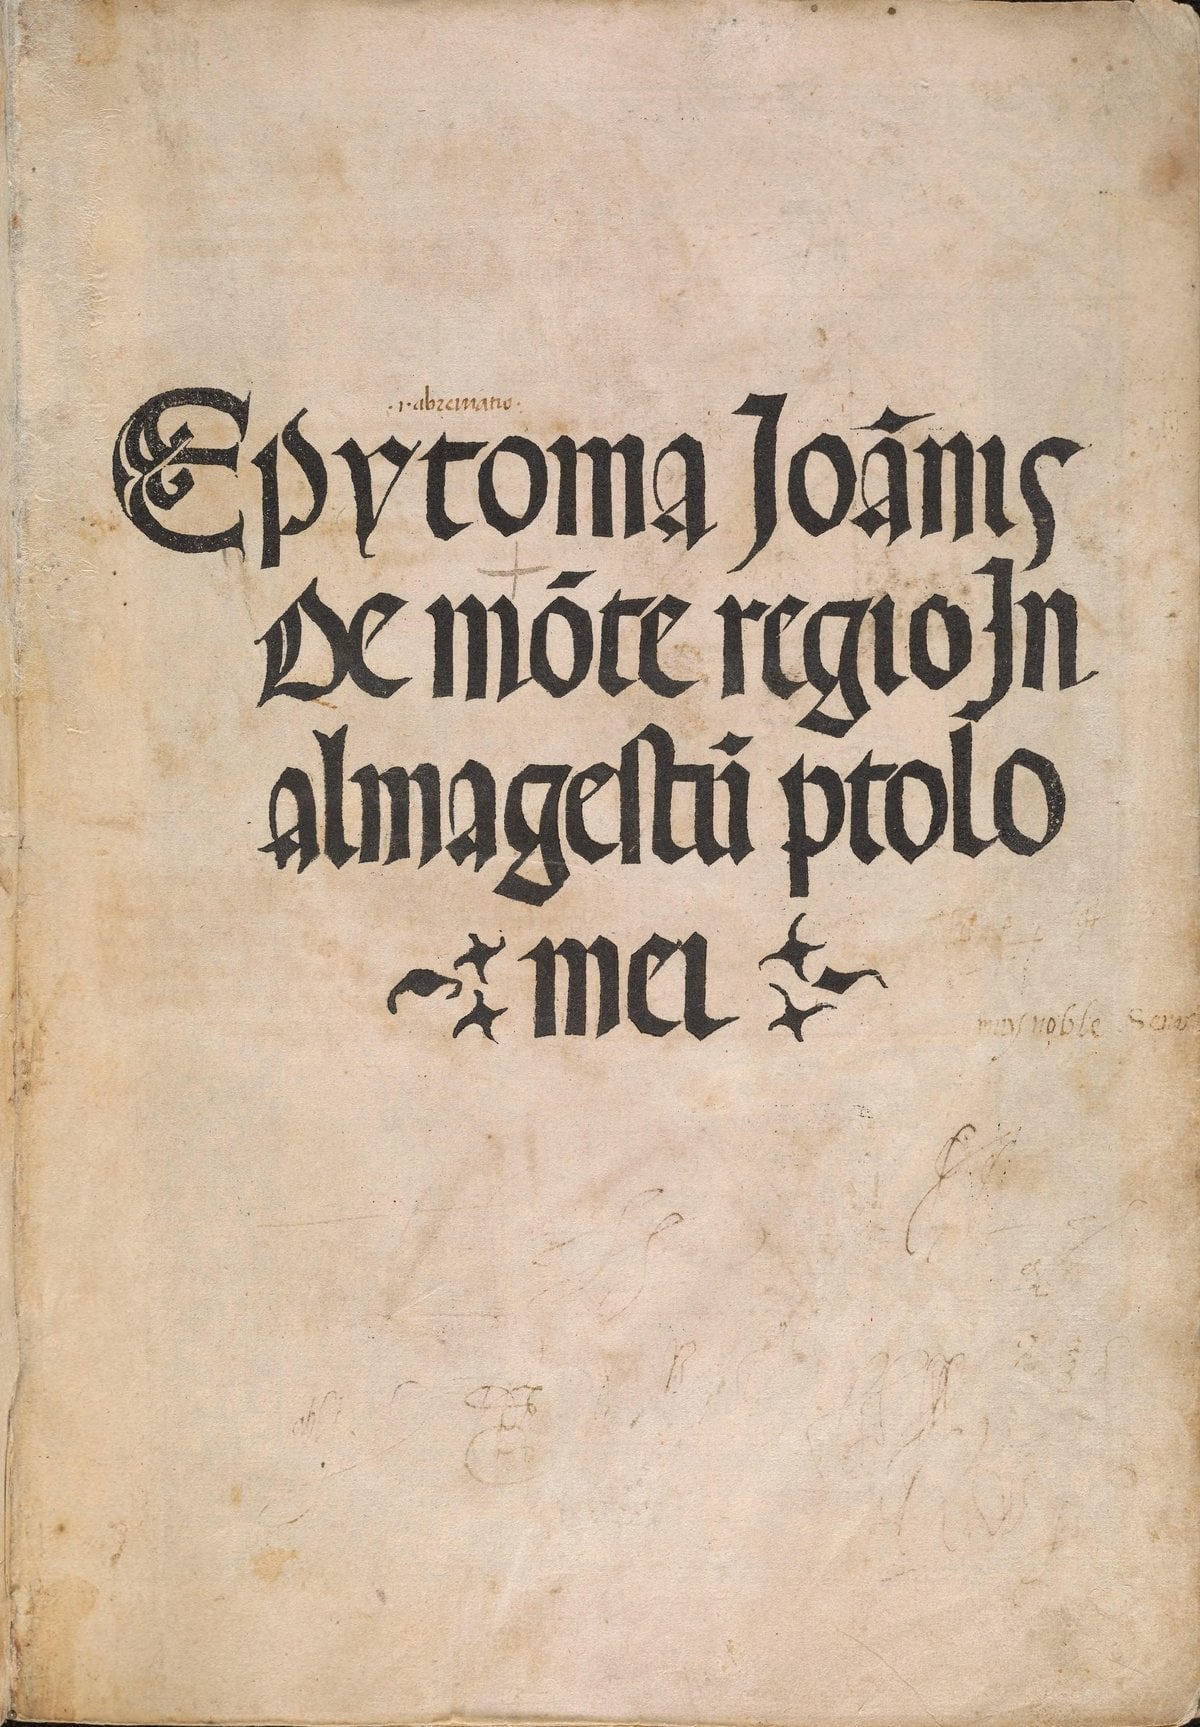 ·i·abreviatio·
Epytoma Joānis
De mōte regio In
almagestū ptolo
mei
muy noble Señor